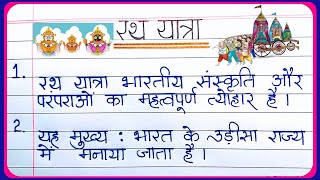 रथ यात्रा
1. रथ यात्रा भारतीय संस्कृति और
परंपराओं का महत्वपूर्ण त्योहार है।
2. यह मुख्य : भारत के उड़ीसा राज्य
में मनाया जाता है।